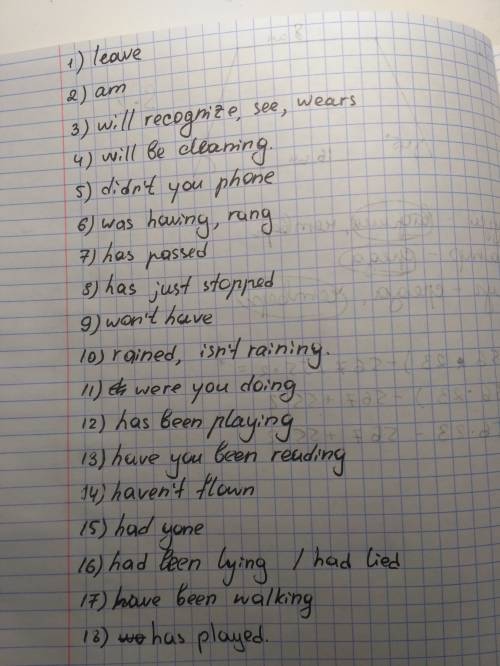 1) leave
2) am
3) will recognize, see, wears
4) will be cleaning.
5) didn't you phone
6) was having, rang
7) has passed
8) has just stopped
9) won't have
10) rained, isn't raining.
11) were you doing
12) has been playing
13) have you been reading
14) haven't flown
15) had gone
16) had been lying / had lied
17) have been walking
18) has played.